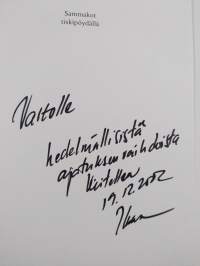 Sammakot
tiskipöydällä
Valtolle
hedelmällisistä
ajatuksenvaihdoista
kiitellen
19.12.2002